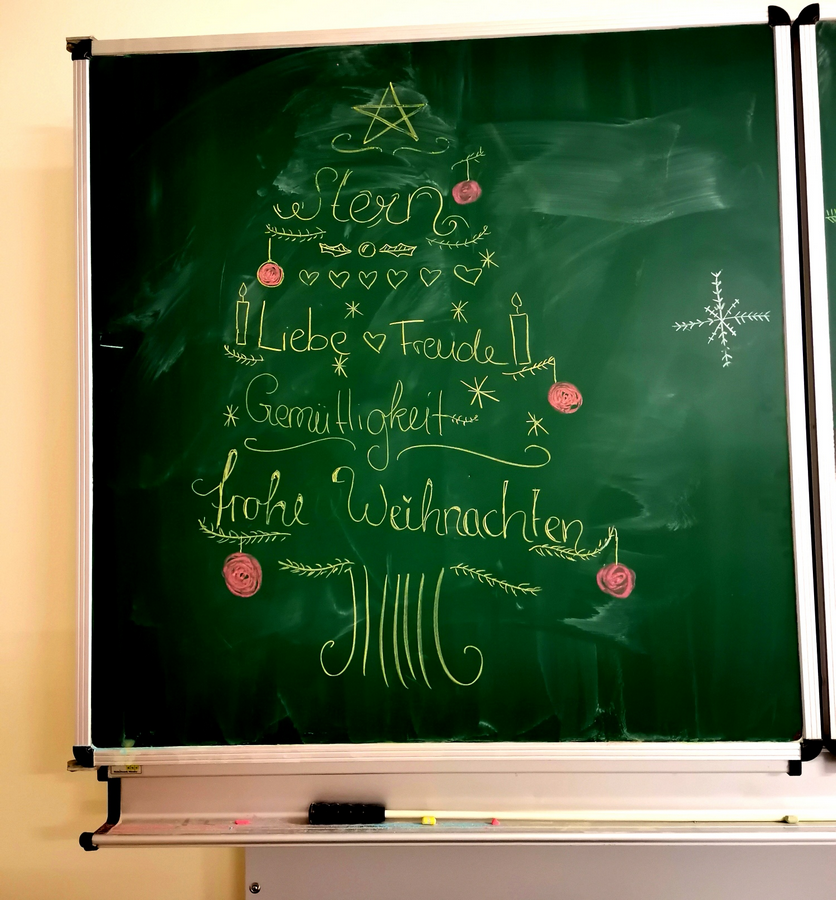 Stern
Liebe Freude
Gemütligkeit
frohe Weihnachten